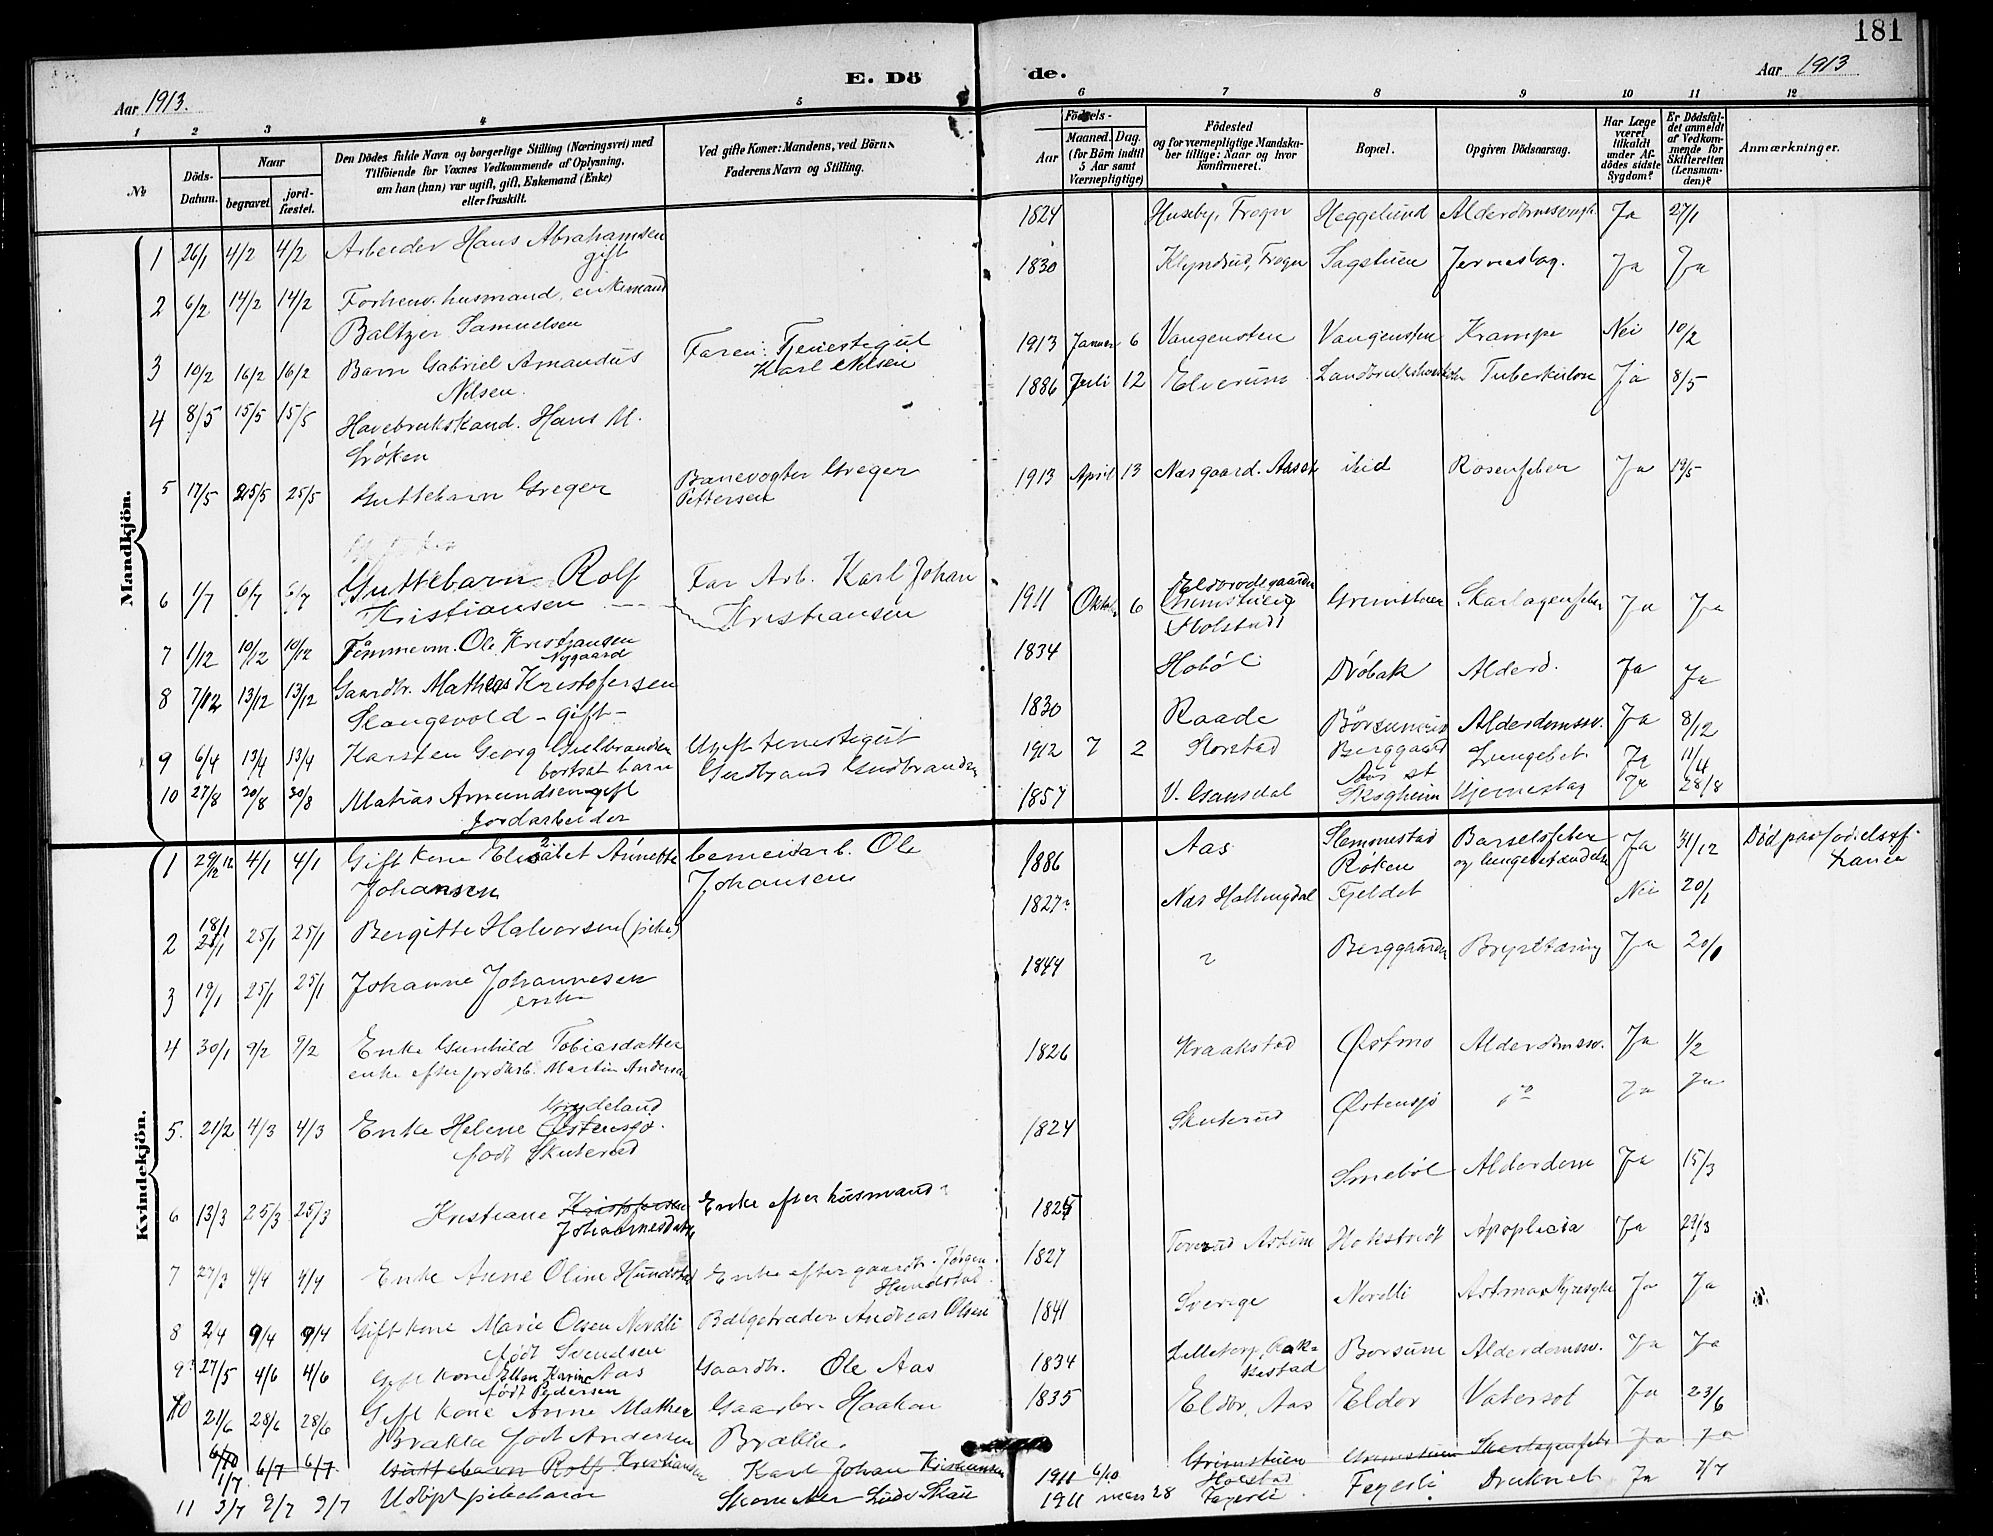 181
E. Döde.
Aar 1913.
Aar 1913
1 2 3 4 5 6 7 8 9 10 11 12
No
Döds-Datum.
Naar
begravet.
jordfæstet.
Den Dödes fulde Navn og borgerlige Stilling (Næringsvei) med
Tilföiende for Voxnes Vedkommende af Oplysning,
om han (hun) var ugift, gift, Enkemand (Enke)
eller fraskilt.
Ved gifte Koner: Mandens, ved Börn:
Faderens Navn og Stilling.
Födsels-
Aar
Maaned. Dag.
(for Börn indtil
5 Aar samt
Værnepligtige)
Födested
og for værnepligtige Mandska-
ber tillige: Naar og hvor
konfirmeret.
Bopæl.
Opgiven Dödsaarsag.
Har Læge
været
tilkaldt
under Af-
dödes sidste
Sygdom?
Er Dödsfal-
det anmeldt
af Vedkom-
mende for
Skifteretten
(Lensman-
den)?
Anmærkninger.
Mandkjön.
1 26/1 4/2 4/2 Arbeider Hans Abrahamsen gift 1824 Huseby, Frogn Heggelund Ja 27/1
2 6/2 14/2 14/2 Forhenv. husmand, enkemand Baltzer Samuelsen 1830 Frogn Sagstuen Jerneslag. Ja Ja
3 10/2 16/2 16/2 Barn Gabriel Amandus Nilsen. Faren: Tjenestegut Karl Nilsen 1913 Januar 6 Vangensten Vangensten Krampe Nei 10/2
4 8/5 15/5 15/5 Havebrukskand. Hans M. Gröken 1886 Juli 12 Elverum Tuberkulose Ja 8/5
5 17/5 25/5 25/5 Guttebarn Greger Banevogter Greger Pettersen 1913 April 13 Næsgaard. Aas ibid Rosenfeber Ja 19/5
6 1/7 6/7 6/7 Guttebarn Rolf Kristiansen Far Arb. Karl Johan Kristiansen 1911 Oktob. 6 Grimstuen Holstad Grimstuen Skarlagensfeber Ja Ja
7 1/12 10/12 10/12 Tømmerm. Ole Kristiansen Nygaard 1834 Hobøl Drøbak Alderd. Ja Ja
8 7/12 13/12 13/12 Gaardbr. Mathias Kristofersen Skangsvold - gift - 1830 Raade Alderdomssv. Ja 8/12
9 6/4 13/4 13/4 Karsten Georg Gulbrandsen bortsat barn Ugift tjenestegut Gudbrand Gudbrandsen 1912 7 2 Korstad Berggaard Aas st Lungebet. Ja 11/4
10 27/8 30/8 30/8 Matias Amundsen gift Jordarbeider 1857 V. Gansdal Skogheim Hjerneslag Ja 28/8
Kvindekjön.
1 29/12 12 4/1 4/1 Gift kone Elisabet Annette Johansen Cementarb. Ole Johansen 1886 Aas Slemmestad Røken Barselfeber og lungebetændelse Ja 31/12 Død paa fødselsf-
2 18/1 25/1 25/1 Bergitte Halvorsen (pike) 1827? Næs Hallingdal Fjeldet Nei 20/1
3 19/1 25/1 25/1 Johanne Johannesen enke 1844 ? Berggaarden Brysttæring Ja 20/1
4 30/1 9/2 9/2 Enke Gunhild Tobiasdatter enke efter jordarb. Martin Andersen 1826 Kraakstad Østmo Alderdomssv. Ja 1/2
5. 21/2 4/3 4/3 Enke Helene Østensjø. Grydeland født Skuterud 1824 Skuterud Østensjø do Ja Ja
6 13/3 25/3 25/3 Kristiane Kristofersen Johannesdatter Enke efter husmand 1825 Smebøl Alderdom Ja 15/3
7 27/3 4/4 4/4 Enke Anne Oline Hundstad Enke efter gaardbr. Jørgen Hundstad 1827 Askim Apoplexia Ja 29/3
8 2/4 9/4 9/4 Gift kone Marie Olsen Nordli født Svendsen Bælgetræder Andreas Olsen 1841 Sverige Nordli Astma Nyresyke Ja Ja
9 27/5 4/6 4/6 Gift kone Ellen Karine Aas født Pedersen Gaardbr. Ole Aas 1834 Lilletorp, Rakkestad Borsum Alderdomssv. Ja Ja
10 21/6 28/6 28/6 Gift kone Anne Mathea Brække født Andersen Gaardbr. Haakon Brække. 1835 Eldor, Aas Eldor Vatersot Ja 23/6
6/10 1/7 6/7 6/7 Guttebarn Rolf Kristiansen Karl Johan Kristiansen 1911 6/10 Grimstuen Holstad Grimstuen Skarlagensfeb. Ja Ja
11 3/7 9/7 9/7 Udøpt pikebarn Skomaker 1911 mars 28 Fagerli Fagerli Druknet Ja 7/7